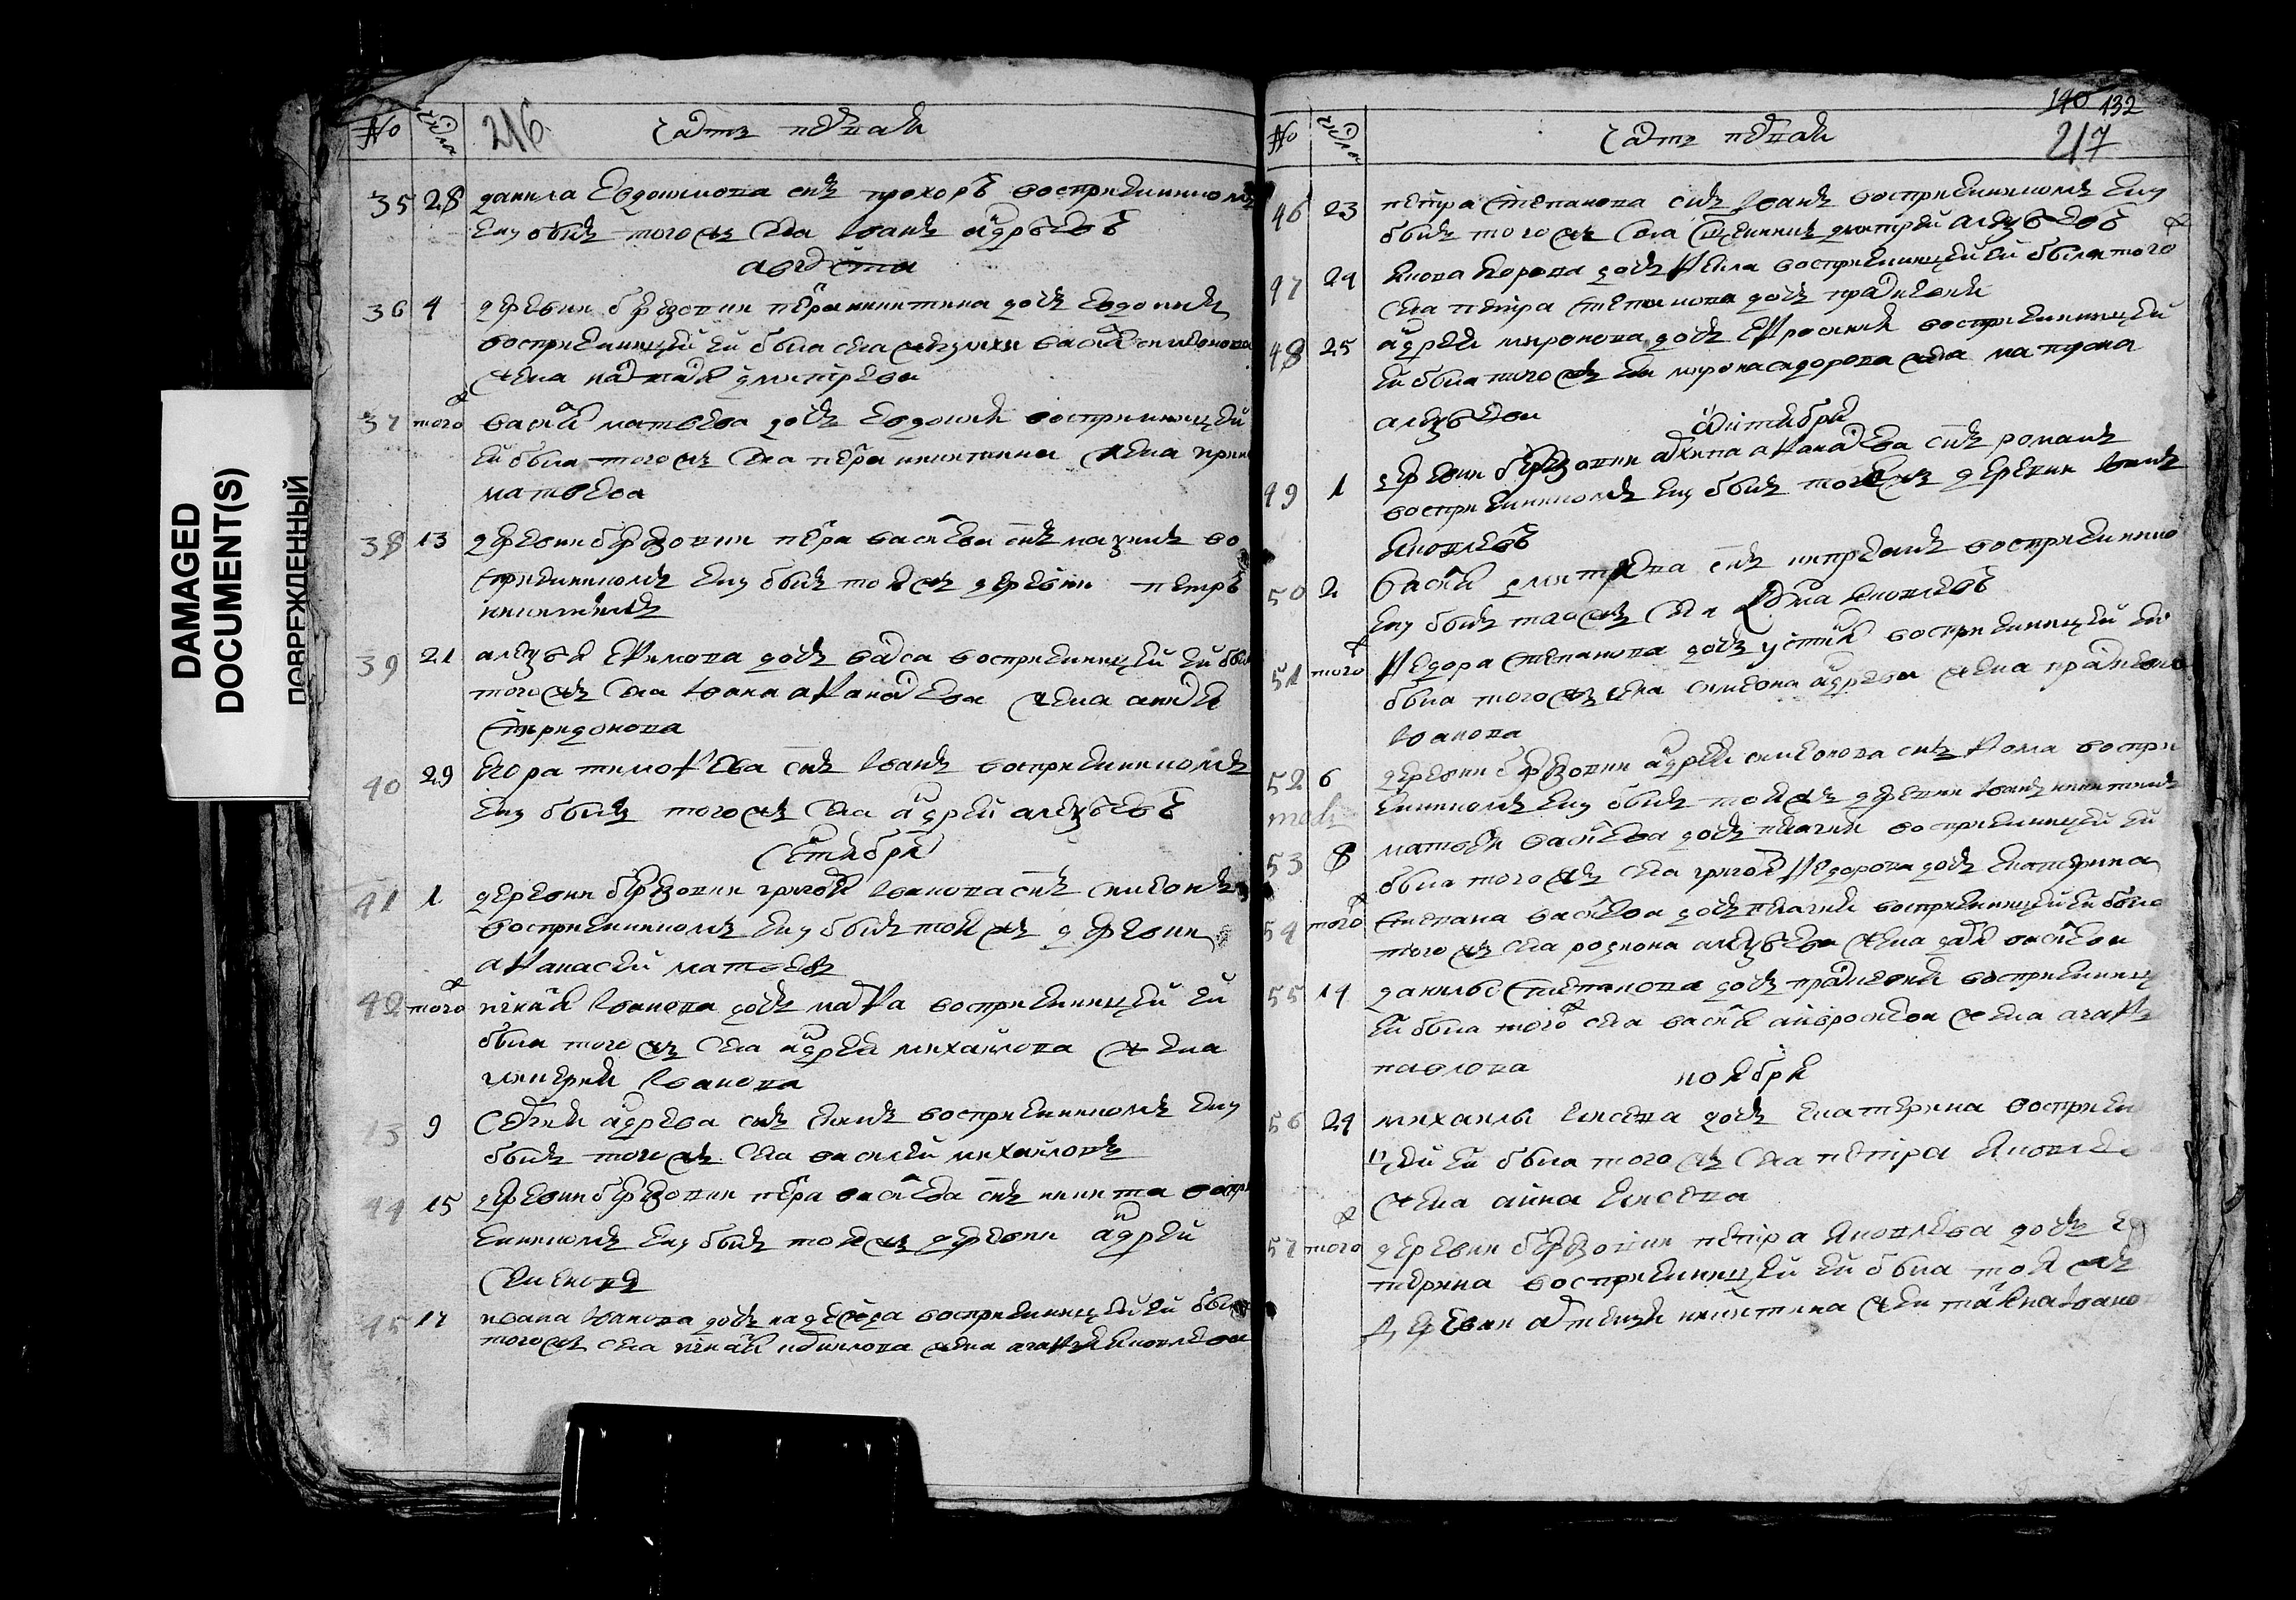 DAMAGED
DOCUMENT(S)
ПОВРЕЖДЕННЫЙ
№ числа 216 часть первая
35 28 данила Евдокимова снъ прохоръ восприемникомъ
ему былъ того ж села иванъ адрѣевъ
августа
36 4 деревни березовки петра никитина дочь евдокия
восприемницей ей была села васил симонова
жена настася дмитрева
37 того ж васил матвеева дочь Евдокия восприемницей
ей была того ж села петра никитина жена ирина
матвева
38 13 деревни березовки петра василева снъ максимъ во
сприемникомъ ему былъ той ж деревни петръ
никитинъ
39 21 алеѯѣя Ефимова дочь васса восприемницей ей была
того ж села ивана афанасева жена анися
спиридонова
40 29 Егора тимофеева снъ иванъ восприемникомъ
ему былъ того ж села адрей алеѯѣевъ
сентября
41 1 деревни березовки григоря иванова снъ симеонъ
восприемникомъ ему былъ той ж деревни
афанасей матвевъ
42 того ж игнатя иванова дочь марфа восприемницей ей
была того ж села адрея михаилова жена
гликерия иванова
43 9 сергея адрева снъ восприемникомъ ему
былъ того ж села василей михаиловъ
44 15 деревни березовки петра василева снъ никита воспри
емникомъ ему былъ той ж деревни адрей
симеоновъ
45 17 ивана иванова дочь надежда восприемницей ей была
того ж села игнатя жена агафия яковлева
№ числа часть перваи 140 132
217
46 23 петра степанова снъ иванъ восприемникомъ ему
былъ того ж села священникъ дмитрей алеѯѣевъ
47 24 дочь фекла восприемницей ей была того ж
села петра степанова дочь прасковия
48 25 адрея миронова дочь Ефросиния восприемницей
ей была того ж села мирона сидорова жена матрона
алеѯѣева
октября
49 1 деревни березовки архипа афанасева снъ романъ
восприемникомъ ему былъ той ж деревни иванъ
яковлевъ
50 2 васил дмитрева снъ восприемнико
ему былъ того ж села яковлевъ
51 того ж федора степанова дочь устиния восприемницей ей
была того ж села симеона адрева жена прасковия
иванова
52 6 деревни березовки адрея симеонова снъ фома воспри
емникомъ ему былъ той ж деревни иванъ никитинъ
53 8 матвея василева дочь пелагия восприемницей ей
была того ж села григоря федорова дочь екатерина
54 того ж степана василева дочь пелагия восприемницей ей была
того ж села родиона алеѯѣева жена даря василева
55 14 данилы степанова дочь прасковия восприемниц
ей была того ж села васил амбросиева жена агафя
павлова
ноября
56 24 михаилы дочь екатерина восприем
ницей ей была того ж села петра яковлева
жена анна
57 того ж деревни березовки петра яковлева дочь ека
терина восприемницей ей была той ж
деревни никитина жена татияна ивано